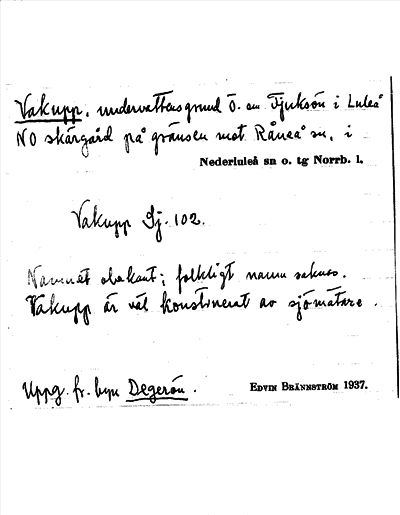 Vakupp, undervattensgrund Ö. om Tjuksön i Luleå
NO skärgård på gränsen mot Råneå sn, i
Nederluleå sn o. tg Norrb. l.
Vakupp Sj. 102.
Namnet obekant; folkligt namn saknas.
Vakupp är väl konstruerat av sjömätare.
Uppg. fr. byn Degerön.
EDVIN BRÄNNSTRÖM 1937.